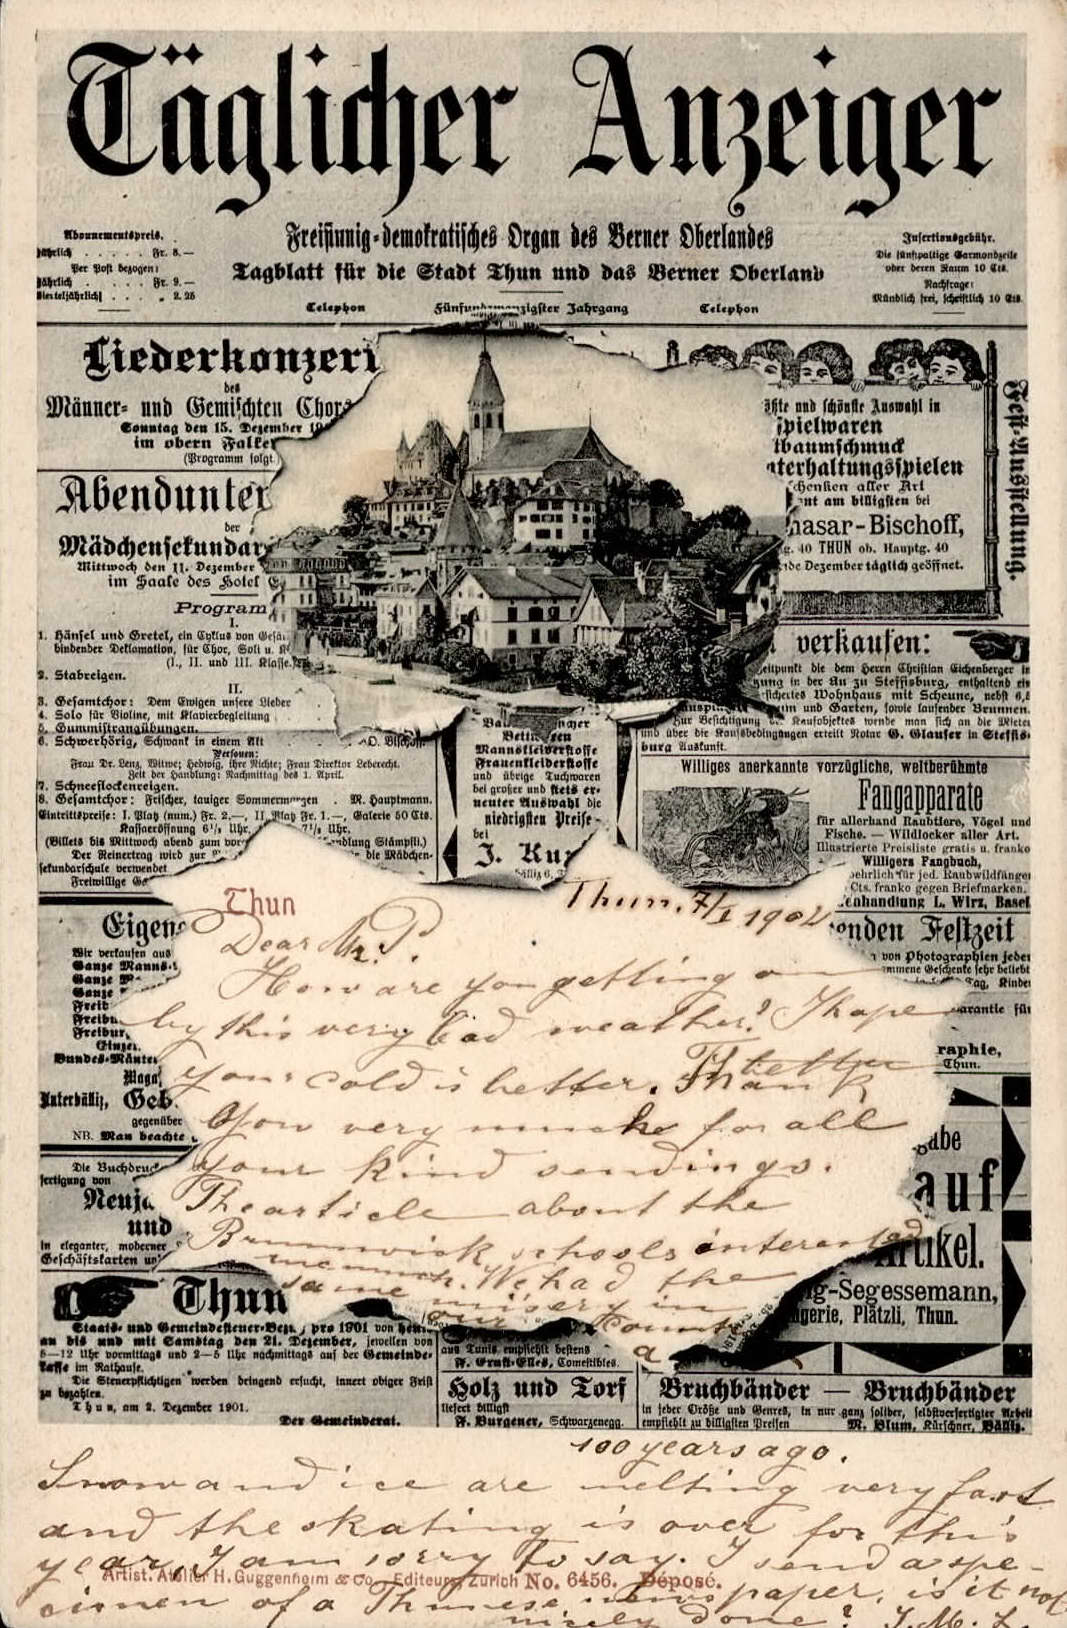 Täglicher Anzeiger
Freisinnig-demokratisches Organ des Berner Oberlandes
Tagblatt für die Stadt Thun und das Berner Oberland
Abonnementspreis.
Jährlich . . . . . Fr. 8.—
Per Post bezogen:
Jährlich . . . . . Fr. 9.—
Vierteljährlich . . . „ 2.25
Insertionsgebühr.
Die fünfspaltige Garmondzeile
oder deren Raum 10 Cts.
Nachfrage:
Mündlich frei, schriftlich 10 Cts.
Telephon Fünfundzwanzigster Jahrgang Telephon
Liederkonzert
des
Männer- und Gemischten Chors
Sonntag den 15. Dezember 19
im obern Falken
(Programm folgt.)
Abendunter
der
Mädchensekundar
Mittwoch den 11. Dezember
im Saale des Hotel
Program
I.
1. Hänsel und Gretel, ein Cyklus von
bindender Deklamation, für Chor, Soli u.
(I., II. und III. Klasse.)
2. Stabreigen.
II.
3. Gesamtchor: Dem Ewigen unsere Lieder
4. Solo für Violine, mit Klavierbegleitung
5. Gummistrangübungen.
6. Schwerhörig, Schwank in einem Akt O. Bischoff
Personen:
Frau Dr. Lenz, Witwe; Hedwig, ihre Nichte; Frau Direktor Leberecht.
Zeit der Handlung: Nachmittag des 1. April.
7. Schneeflockenreigen.
8. Gesamtchor: Frischer, tauiger Sommermorgen . M. Hauptmann.
Eintrittspreise: I. Platz (num.) Fr. 2.—, II. Platz Fr. 1.—, Galerie 50 Cts.
Kassaeröffnung 6½ Uhr, 7½ Uhr.
(Billets bis Mittwoch abend zum vor ndlung Stämpfli.)
Der Reinertrag wird zur die Mädchen-
sekundarschule verwendet
Freiwillige
ßte und schönste Auswahl in
Spielwaren
tbaumschmuck
nterhaltungsspielen
chenken aller Art
nt am billigsten bei
hasar-Bischoff,
g. 40 THUN ob. Hauptg. 40
nde Dezember täglich geöffnet.
Fest-Ausstellung.
verkaufen:
eitpunkt die dem Herrn Christian Eichenberger in
zung in der Au zu Steffisburg, enthaltend ein
sichertes Wohnhaus mit Scheune, nebst 6,
um und Garten, sowie laufender Brunnen.
Zur Besichtigung Kaufobjektes wende man sich an die Mieter
und über die Kaufsbedingungen erteilt Notar G. Glauser in Steffis-
burg Auskunft.
Bettüchern
Mannskleiderstoffe
Frauenkleiderstoffe
und übrige Tuchwaren
bei großer und stets er-
neuter Auswahl die
niedrigsten Preise
bei
J. Ku
Williges anerkannte vorzügliche, weltberühmte
Fangapparate
für allerhand Raubtiere, Vögel und
Fische. — Wildlocker aller Art.
Illustrierte Preisliste gratis u. franko
Willigers Fangbuch,
behrlich für jed. Raubwildfänger
Cts. franko gegen Briefmarken.
enhandlung L. Wirz, Basel
Eigene
Wir verkaufen aus
Ganze Manns-
Ganze
Ganze
Bundes-Mäntel
Maga
Unterbälliz, Geb
gegenüber
NB. Man beachte
enden Festzeit
von Photographien jeder
mmene Geschenke sehr beliebt
Tag, Kinder
arantie für
raphie,
Thun.
Thun
Thun. 7/I 1902
Dear Mr. P.
How are you getting on
by this very bad weather? I hope
your cold is better. Thank
you very much for all
your kind sendings.
The article about the
Brunswick schools interested
me much. We had the
same misery in
our country
a
100 years ago.
Die Buchdruck
fertigung von
Neuja
und
in eleganter, moderner
Geschäftskarten und
gabe
auf
Artikel.
g-Segessemann,
gerie, Plätzli, Thun.
Thun
Staats- und Gemeindesteuer-Bezug pro 1901 von heute
an bis und mit Samstag den 21. Dezember, jeweilen von
8—12 Uhr vormittags und 2—5 Uhr nachmittags auf der Gemeinde-
kasse im Rathause.
Die Steuerpflichtigen werden dringend ersucht, innert obiger Frist
zu bezahlen.
Thun, am 2. Dezember 1901.
Der Gemeinderat.
aus Tunis empfiehlt bestens
Comestibles.
Holz und Torf
liefert billigst
F. Burgener, Schwarzenegg.
Bruchbänder — Bruchbänder
in jeder Größe und Genres, in nur ganz solider, selbstverfertigter Arbeit
empfiehlt zu billigsten Preisen M. Blum, Kürschner, Bälliz.
Snow and ice are melting very fast
and the skating is over for this
year, I am sorry to say. I send a spe-
cimen of a Thunese newspaper, is it not
nicely done? J. M. L.
Artist. Atelier H. Guggenheim & Co., Editeurs, Zürich No. 6456. Déposé.